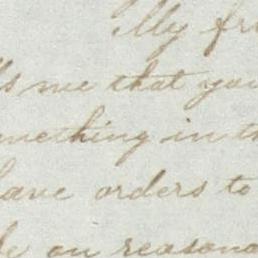 My fri
lls me that you
omething in th
have orders to
be on reasona